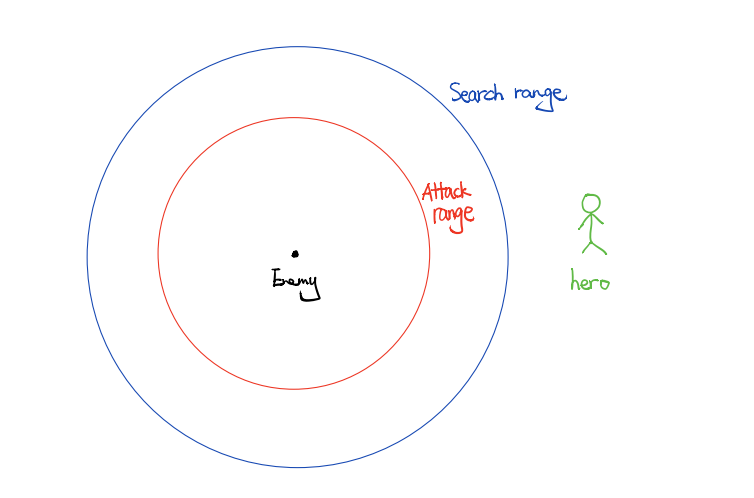 Search range
Attack
range
Enemy
hero